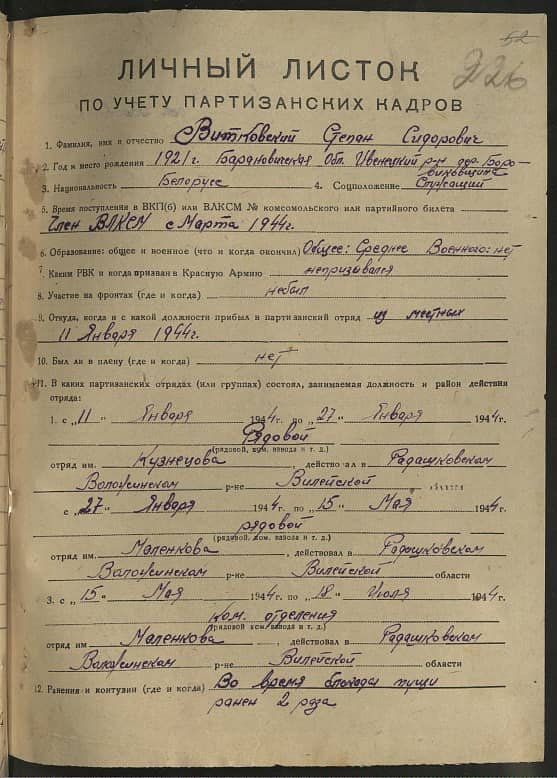 52
226
ЛИЧНЫЙ ЛИСТОК
ПО УЧЕТУ ПАРТИЗАНСКИХ КАДРОВ
1. Фамилия, имя и отчество Витковский Степан Сидорович
2. Год и место рождения 1921 г. Барановичская Обл. Ивенецкий р-н дер. Боро-
виковщина
3. Национальность Белорусс 4. Соцположение Служащий
5. Время поступления в ВКП(б) или ВЛКСМ № комсомольского или партийного билета
Член ВЛКСМ с Марта 1944 г.
6. Образование: общее и военное (что и когда окончил) Общее: Среднее Военного: нет
7. Каким РВК и когда призван в Красную Армию непризывался
8. Участие на фронтах (где и когда) небыл
9. Откуда, когда и с какой должности прибыл в партизанский отряд из местных
11 Января 1944 г.
10. Был ли в плену (где и когда) нет
11. В каких партизанских отрядах (или группах) состоял, занимаемая должность и район действия
отряда:
1. с „11" Января 1944 г. по „27" Января 1944 г.
Рядовой
(рядовой, ком. взвода и т. д.)
отряд им. Кузнецова, действовал в Радашковском
Воложинском р-не Вилейской области
с „27" Января 1944 г. по „15" Мая 1944 г.
рядовой
(рядовой, ком. взвода и т. д.)
отряд им. Маленкова, действовал в Радашковском
Воложинском р-не Вилейской области
3. с „15" Мая 1944 г. по „18" Июля 1944 г.
Ком. отделения
(рядовой ком. взвода и т. д.)
отряд им Маленкова, действовал в Радашковском
Воложинском р-не Вилейской области
12. Ранения и контузии (где и когда) Во время блокады пущи
ранен 2 раза